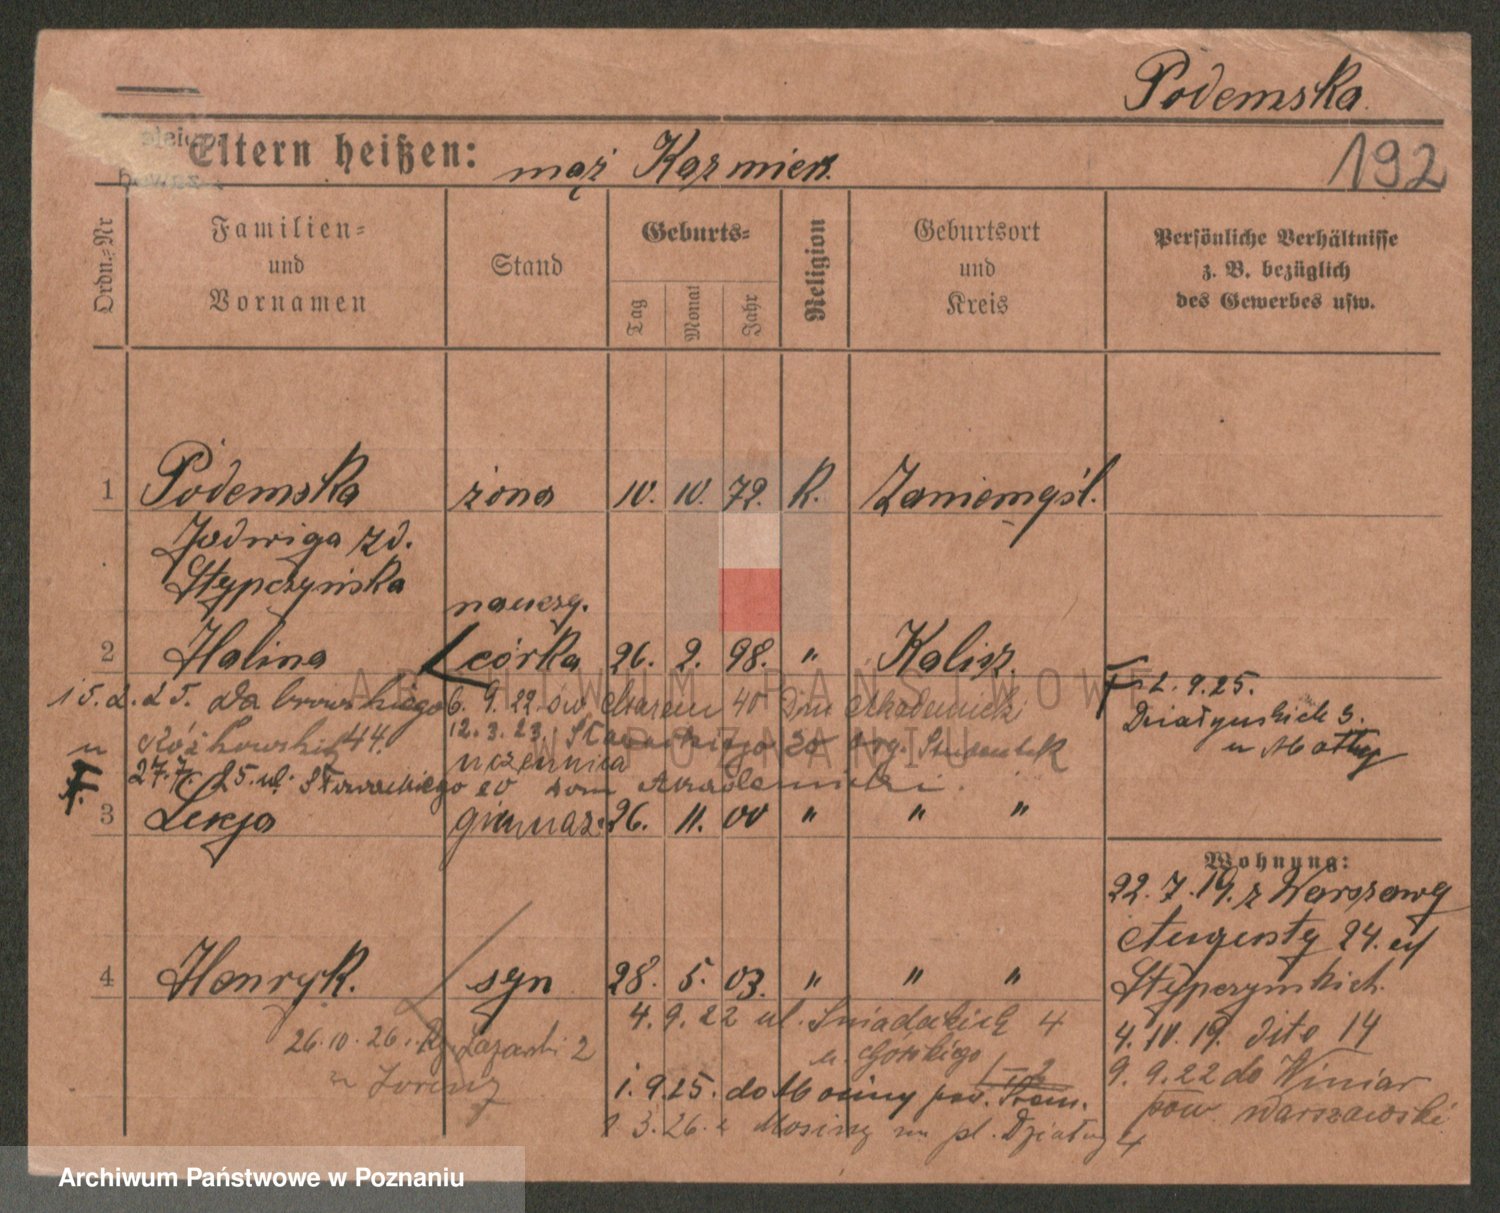 Podemska
192
Eltern heißen: mąż Kazmierz
Ordn.-Nr
Familien-
und
Vornamen
Stand
Geburts-
Tag
Monat
Jahr
Religion
Geburtsort
und
Kreis
Persönliche Verhältnisse
z. B. bezüglich
des Gewerbes usw.
1 Podemska żona 10. 10. 72. K. Zaniemyśl.
Jadwiga zd.
Stypczyńska
nauczy.
2 Halina córka 26. 2. 98. " Kalisz.
15.2.25. Dąbrowskiego 6. 9. 22. św Marcin 40 Dom Akademicki
44. 12. 3. 23. Słowackiego 20
uczennica
27.7.25. ul. Słowackiego 20 dom Akademicki.
F 1.9.25.
Działyńskich 3.
u Matky
3 Lucja gimnaz. 26. 11. 00 " " "
4 Henryk. syn 28. 5. 03. " " "
4. 9. 22 ul. Śniadeckich 4
u. Górskiego
26.10.26. Łazarski 2
1. 9.25. do Mosiny pow. Śrem.
3.26. z Mosiny pl. Działy 4
Wohnung:
22. 7. 19. z Warszawy
Augusty 24. u/
Stypczyńskich.
4. 10. 19. dito 14
9. 9. 22 do Winiar
pow. warszawski
ARCHIWUM PAŃSTWOWE
W POZNANIU
Archiwum Państwowe w Poznaniu